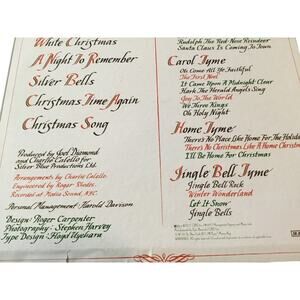 White Christmas
A Night To Remember
Silver Bells
Christmas Time Again
Christmas Song
Produced by Joel Diamond
and Charlie Calello for
Silver Blue Productions Ltd.
Arrangements by Charlie Calello
Engineered by Roger Rhodes
Recorded at Media Sound, NYC
Personal Management: Harold Davison
Design: Roger Carpenter
Photography: Stephen Harvey
Type Design: Lloyd Ugehara
Rudolph The Red-Nose Reindeer
Santa Claus Is Coming To Town
Carol Tyme
Oh Come All Ye Faithful
The First Noel
It Came Upon A Midnight Clear
Hark The Herald Angels Sing
Joy To The World
We Three Kings
Oh Holy Night
Home Tyme
There's No Place Like Home For The Holida
There's No Christmas Like A Home Christm
I'll Be Home For Christmas
Jingle Bell Tyme
Jingle Bell Rock
Winter Wonderland
Let It Snow
Jingle Bells